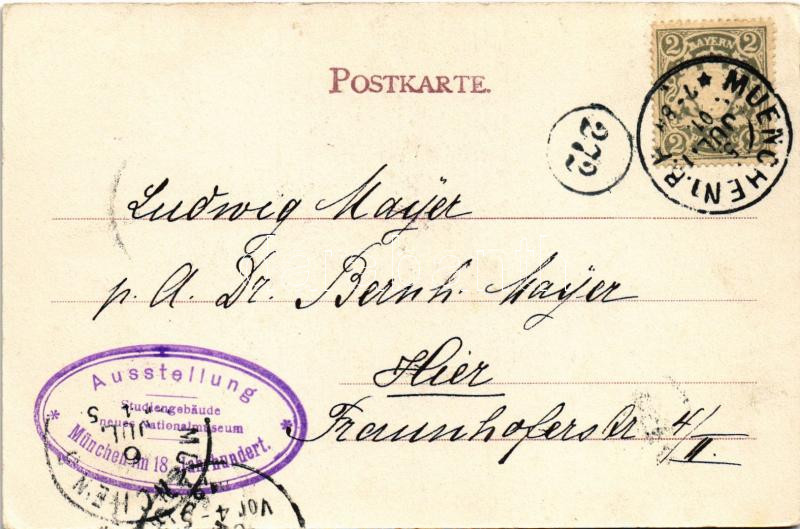 POSTKARTE.
2 BAYERN 2
2 2
MUENCHEN 1. B.P.
JUL
272
Ludwig Mayer
p. A. Dr. Bernh. Mayer
Hier
Fraunhoferstr 4/II.
Ausstellung
Studiengebäude
neues Nationalmuseum
München im 18. Jahrhundert.
MUENCHEN
JUL
Vor 4